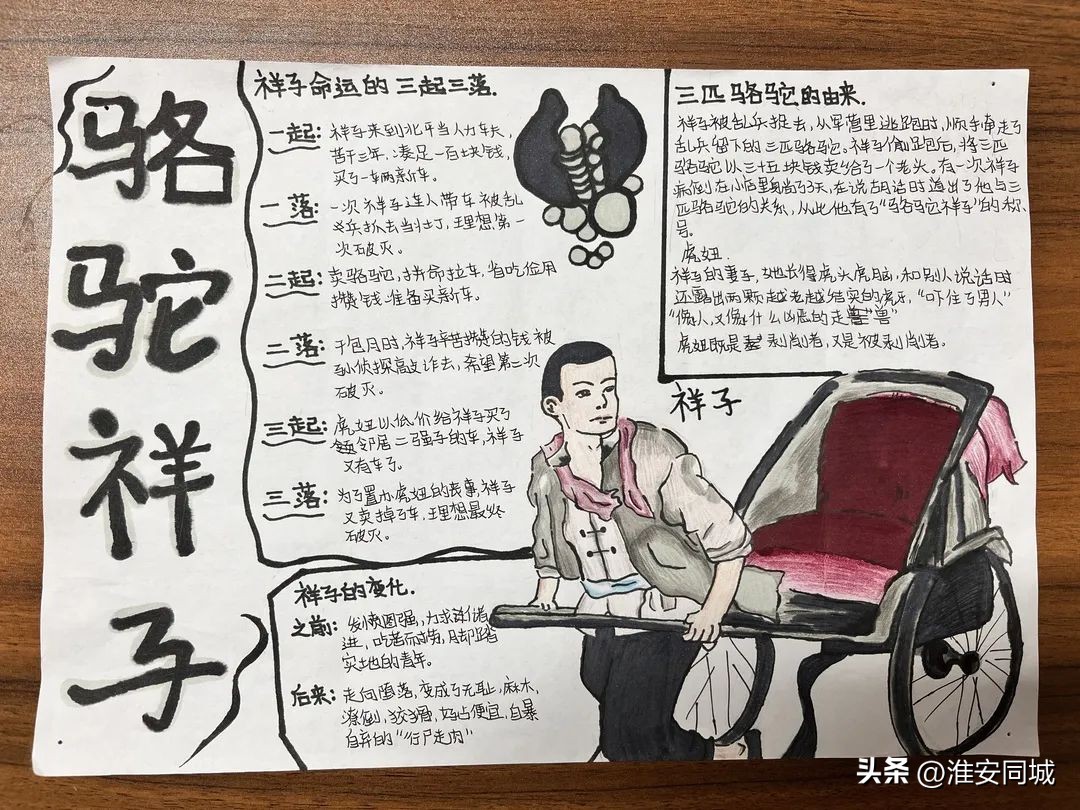 骆驼祥子
祥子命运的三起三落.
一起: 祥子来到北平当人力车夫,
苦干三年,凑足一百块钱,
买了一辆新车。
一落: 一次祥子连人带车被乱
兵抓去当壮丁,理想第一
次破灭。
二起: 卖骆驼,拼命拉车,省吃俭用
攒钱准备买新车。
二落: 干包月时,祥子辛苦攒的钱被
孙侦探敲诈去,希望第二次
破灭。
三起: 虎妞以低价给祥子买了
邻居二强子的车,祥子
又有车了。
三落: 为了置办虎妞的丧事,祥子
又卖掉了车,理想最终
破灭。
三匹骆驼的由来.
祥子被乱兵捉去,从军营里逃跑时,顺手牵走了
乱兵留下的三匹骆驼。祥子偷跑后,将三匹
骆驼以三十五块钱卖给了一个老头。有一次祥子
病倒在小店里躺了3天,在说胡话时道出了他与三
匹骆驼的关系,从此他有了“骆驼祥子”的称
号。
虎妞.
祥子的妻子,她长得虎头虎脑,和别人说话时
还露出两颗越老越结实的虎牙,“吓住了男人”
“像人,又像什么凶恶的走兽”
虎妞既是剥削者,又是被剥削者。
祥子
祥子的变化.
之前: 发愤图强,力求进
进,吃苦而劳,脚踏
实地的青年。
后来: 走向堕落,变成了无耻,麻木,
潦倒,狡猾,好占便宜,自暴
自弃的“行尸走肉”
头条 @淮安同城